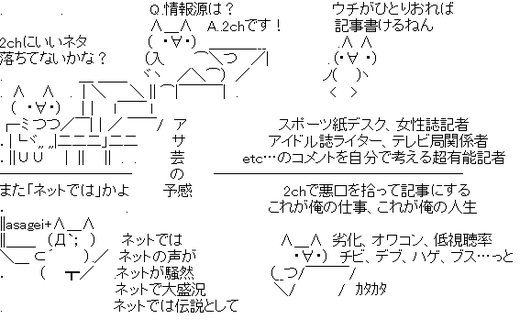 Q.情報源は?
A.2chです!
ウチがひとりおれば
記事書けるねん
2chにいいネタ
落ちてないかな?
アサ芸の予感
スポーツ紙デスク、女性誌記者
アイドル誌ライター、テレビ局関係者
etc…のコメントを自分で考える超有能記者
また「ネットでは」かよ
2chで悪口を拾って記事にする
これが俺の仕事、これが俺の人生
asagei+
ネットでは
ネットの声が
ネットが騒然
ネットで大盛況
ネットでは伝説として
劣化、オワコン、低視聴率
チビ、デブ、ハゲ、ブス…っと
カタカタ